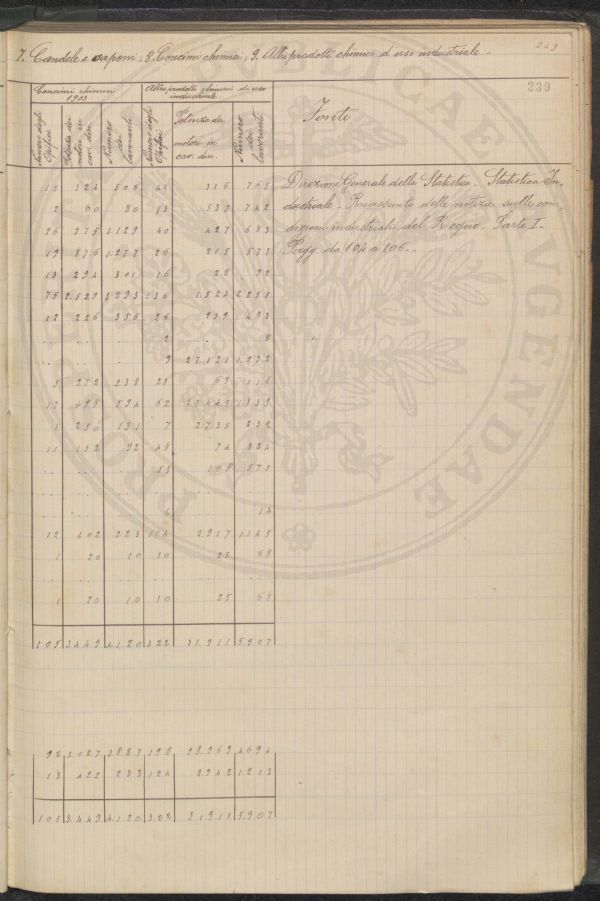 7. Candele e saponi; 8. Concimi chimici; 9. Altri prodotti chimici d'uso industriale.
239
Concimi chimici 1903 Altri prodotti chimici di uso industriale
Numero degli Opifici Potenza dei motori in cav. din. Numero dei lavoranti Numero degli Opifici Potenza dei motori in cav. din. Numero dei lavoranti Fonte
15 324 506 41 316 765 Direzione Generale della Statistica. Statistica In-
2 90 80 13 533 742 dustriale. Riassunto delle notizie sulle con-
26 975 1.129 40 427 683 dizioni industriali del Regno. Parte I.
19 876 1.277 26 215 573 Pagg. da 104 a 106.
13 294 301 16 28 92
75 2.529 3.293 136 1.524 2.855
12 226 356 26 939 483
2 8
9 27.121 1.232
5 272 238 25 65 116
17 498 594 62 27.445 1.839
1 250 131 7 2735 232
11 152 92 48 74 324
53 108 575
14
12 402 223 114 2.917 1.145
1 20 10 10 25 68
1 20 10 10 25 68
105 3.449 4.120 322 31.911 5.907
92 3.027 3.887 198 28.969 4.694
13 422 233 124 2.942 1.213
105 3.449 4.120 322 31.911 5.907
PROMPTE VULGENDAE